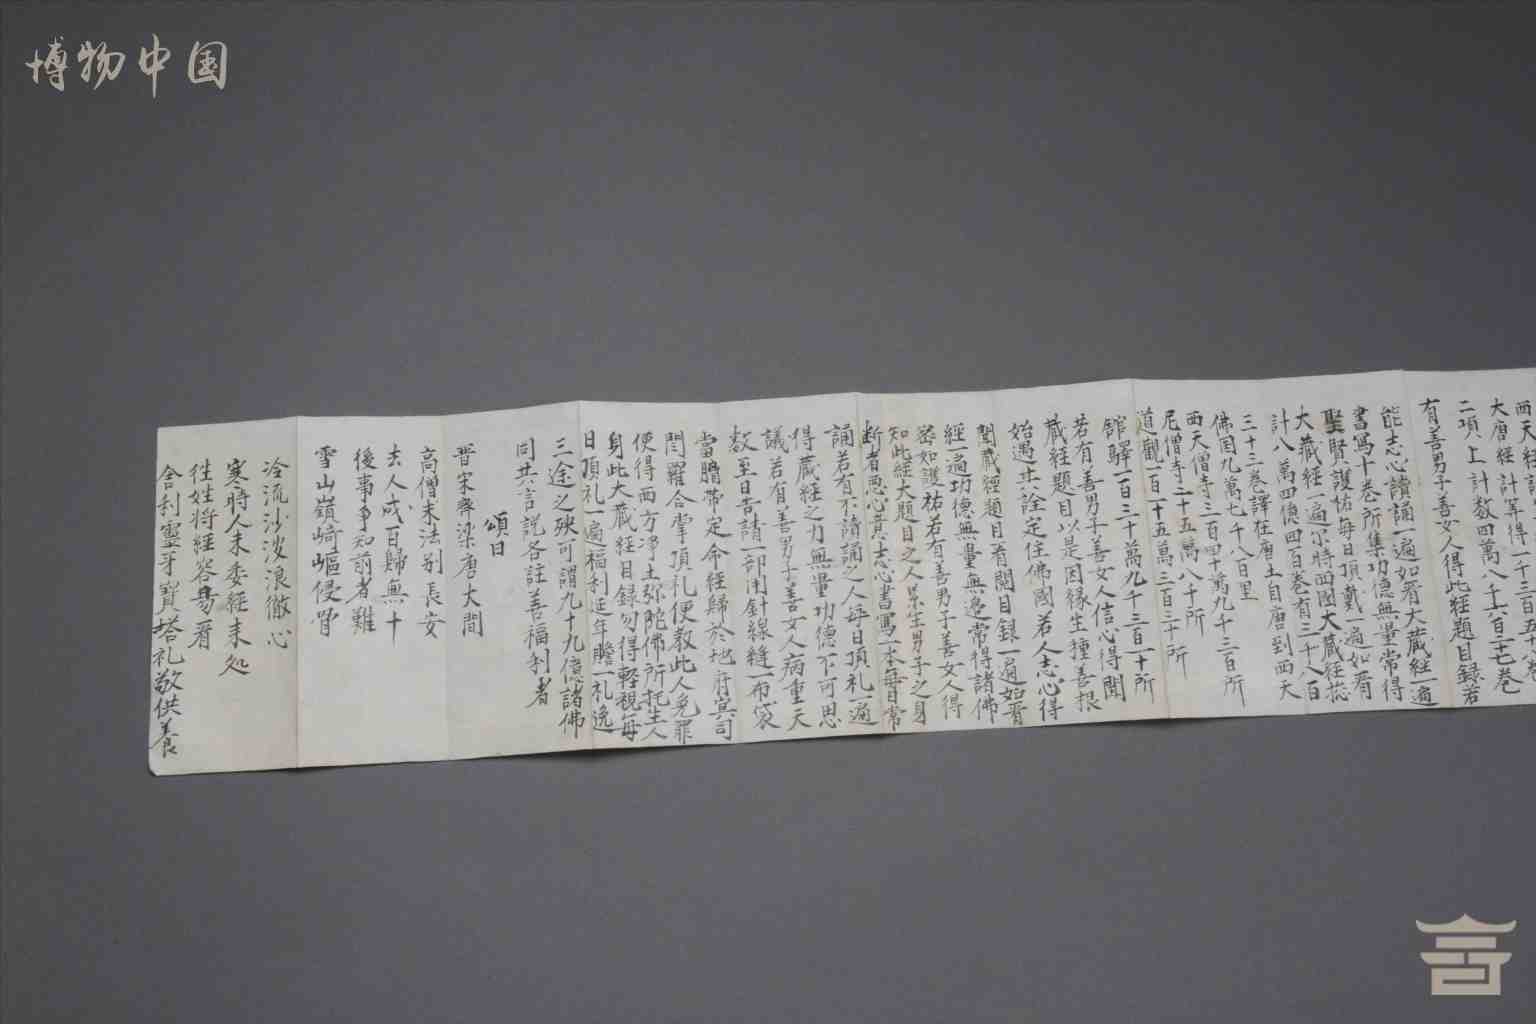 博物中国
大唐經計等得一千
二項上計數四萬八千六百十七卷
有善男子善女人得此經題目錄若
能志心讀誦一遍如看大藏經一遍
書寫十卷所集功德無量常得
聖賢護佑每日頂戴一遍如看
大藏經一遍尔時西國大藏經捴
計八萬四億四百卷有三千八百
三十三卷譯在唐土自唐到西天
佛國九萬七千八百里
西天僧寺三百四十萬九千三百所
尼僧寺二十五萬八十所
道觀一百一十五萬三百三十所
館驛一百二十萬九千三百一十所
若有善男子善女人信心得聞
藏經題目以是因緣生種善根
始遇共詮定住佛國若人志心得
聞藏經題目看閱目錄一遍如看
經一遍功德無量無邊常得諸佛
密如護祐若有善男子善女人得
知此經大題目之人景生男子之身
断者悪心意志心書寫一本每日常
誦若有不請誦之人每日頂礼一遍
得藏經之力無量功德不可思
議若有善男子善女人病重天
數至日告請一部用針線縫一布袋
當胷帶定命經歸於地府冥司
閆羅合掌頂礼便教此人免罪
便得西方净土弥陀佛所托生人
身此大藏經目録勿得輕視每
日頂礼一遍福利延年瞻一礼逸
三途之殃可謂九十九億諸佛
同共言說各註善福利者
頌曰
晋宋齊梁唐大間
高僧求法别長安
去人成百歸無十
後事爭知前者難
雪山嶺崎嶇侵骨
冷流沙波浪徹心
寒時人未委經来処
徃姓將經容昜看
舍利靈牙寶塔礼敬供養